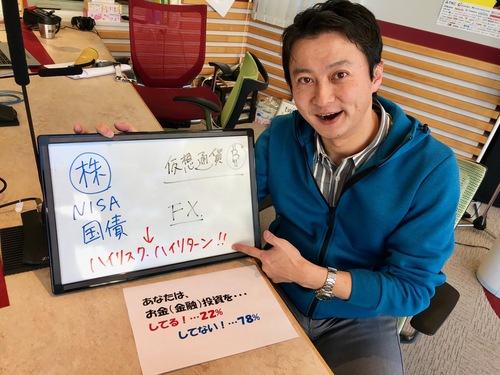 株
NISA
国債
仮想通貨
FX
ハイリスク・ハイリターン!!
あなたは、
お金(金融)投資を・・・
してる!・・・22%
してない!・・・78%